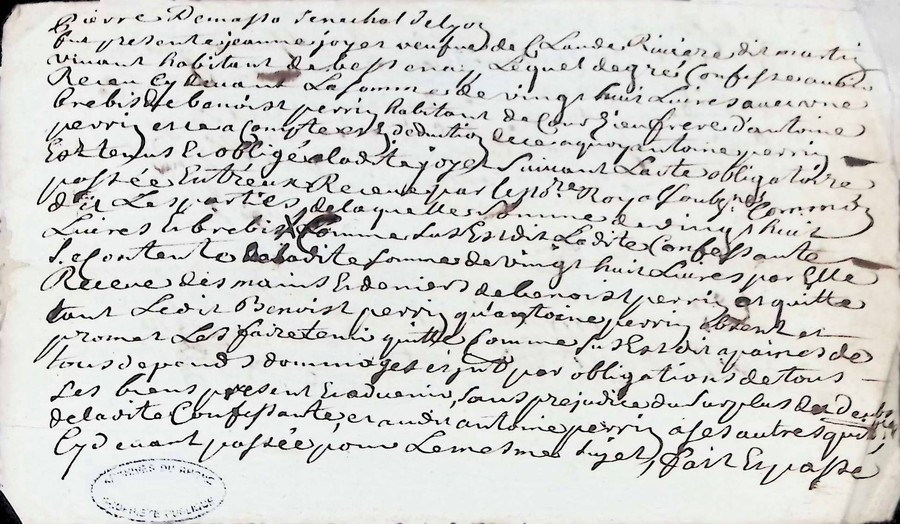 Pierre Demasso Senechal de lyon
fut presente jeanne joyet veufve de Claude Riviere dit martin
vivant habitant de bessenay, Lequel de gré Confesse avoir
Receu Cy devant La somme de vingt huit Livres avec une
brebis de benoist perrin habitant de Courzieu frere d'antoine
perrin et ce a Compte et En deduction de ce a quoy antoine perrin
Est tenus Et obligé a ladite joyet Suivant Lacte obligatoire
passée Entréeux Receue par le no.re Royal soub.né Comme
dit Les parties, de laquelle somme de vingt huit
Livres et brebis Comme sus Est dit La dite Confessante
se Contente de ladite somme de vingt huit Livres par Elle
Receue des mains Et deniers de benoist perrin et quitte
tant Ledit Benoist perrin qu'antoine perrin absent et
promet Les faire tenir quitte Comme sus Est dit a paines de
tous depends dommages et par obligations de tous
ses biens present Et advenir, sans prejudice du surplus de
de ladite Confessante et audit antoine perrin a ses autres quit.
Cy devant passée pour Le mesme sujet, fait Et passé
ARCHIVES DU RHONE
PROPRIÉTÉ PUBLIQUE